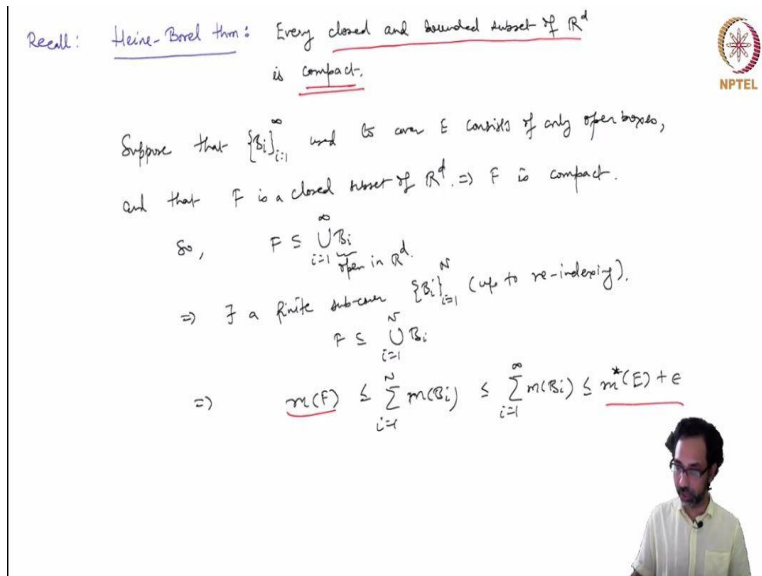 Recall: Heine-Borel thm: Every closed and bounded subset of ℝᵈ
is compact.
NPTEL
Suppose that {Bi}_{i=1}^∞ used to cover E consists of only open boxes,
and that F is a closed subset of ℝᵈ. ⇒ F is compact.
So, F ⊆ ⋃_{i=1}^∞ Bi
open in ℝᵈ.
⇒ ∃ a finite sub-cover {Bi}_{i=1}^N (up to re-indexing).
F ⊆ ⋃_{i=1}^N Bi
⇒ m(F) ≤ ∑_{i=1}^N m(Bi) ≤ ∑_{i=1}^∞ m(Bi) ≤ m*(E) + ε